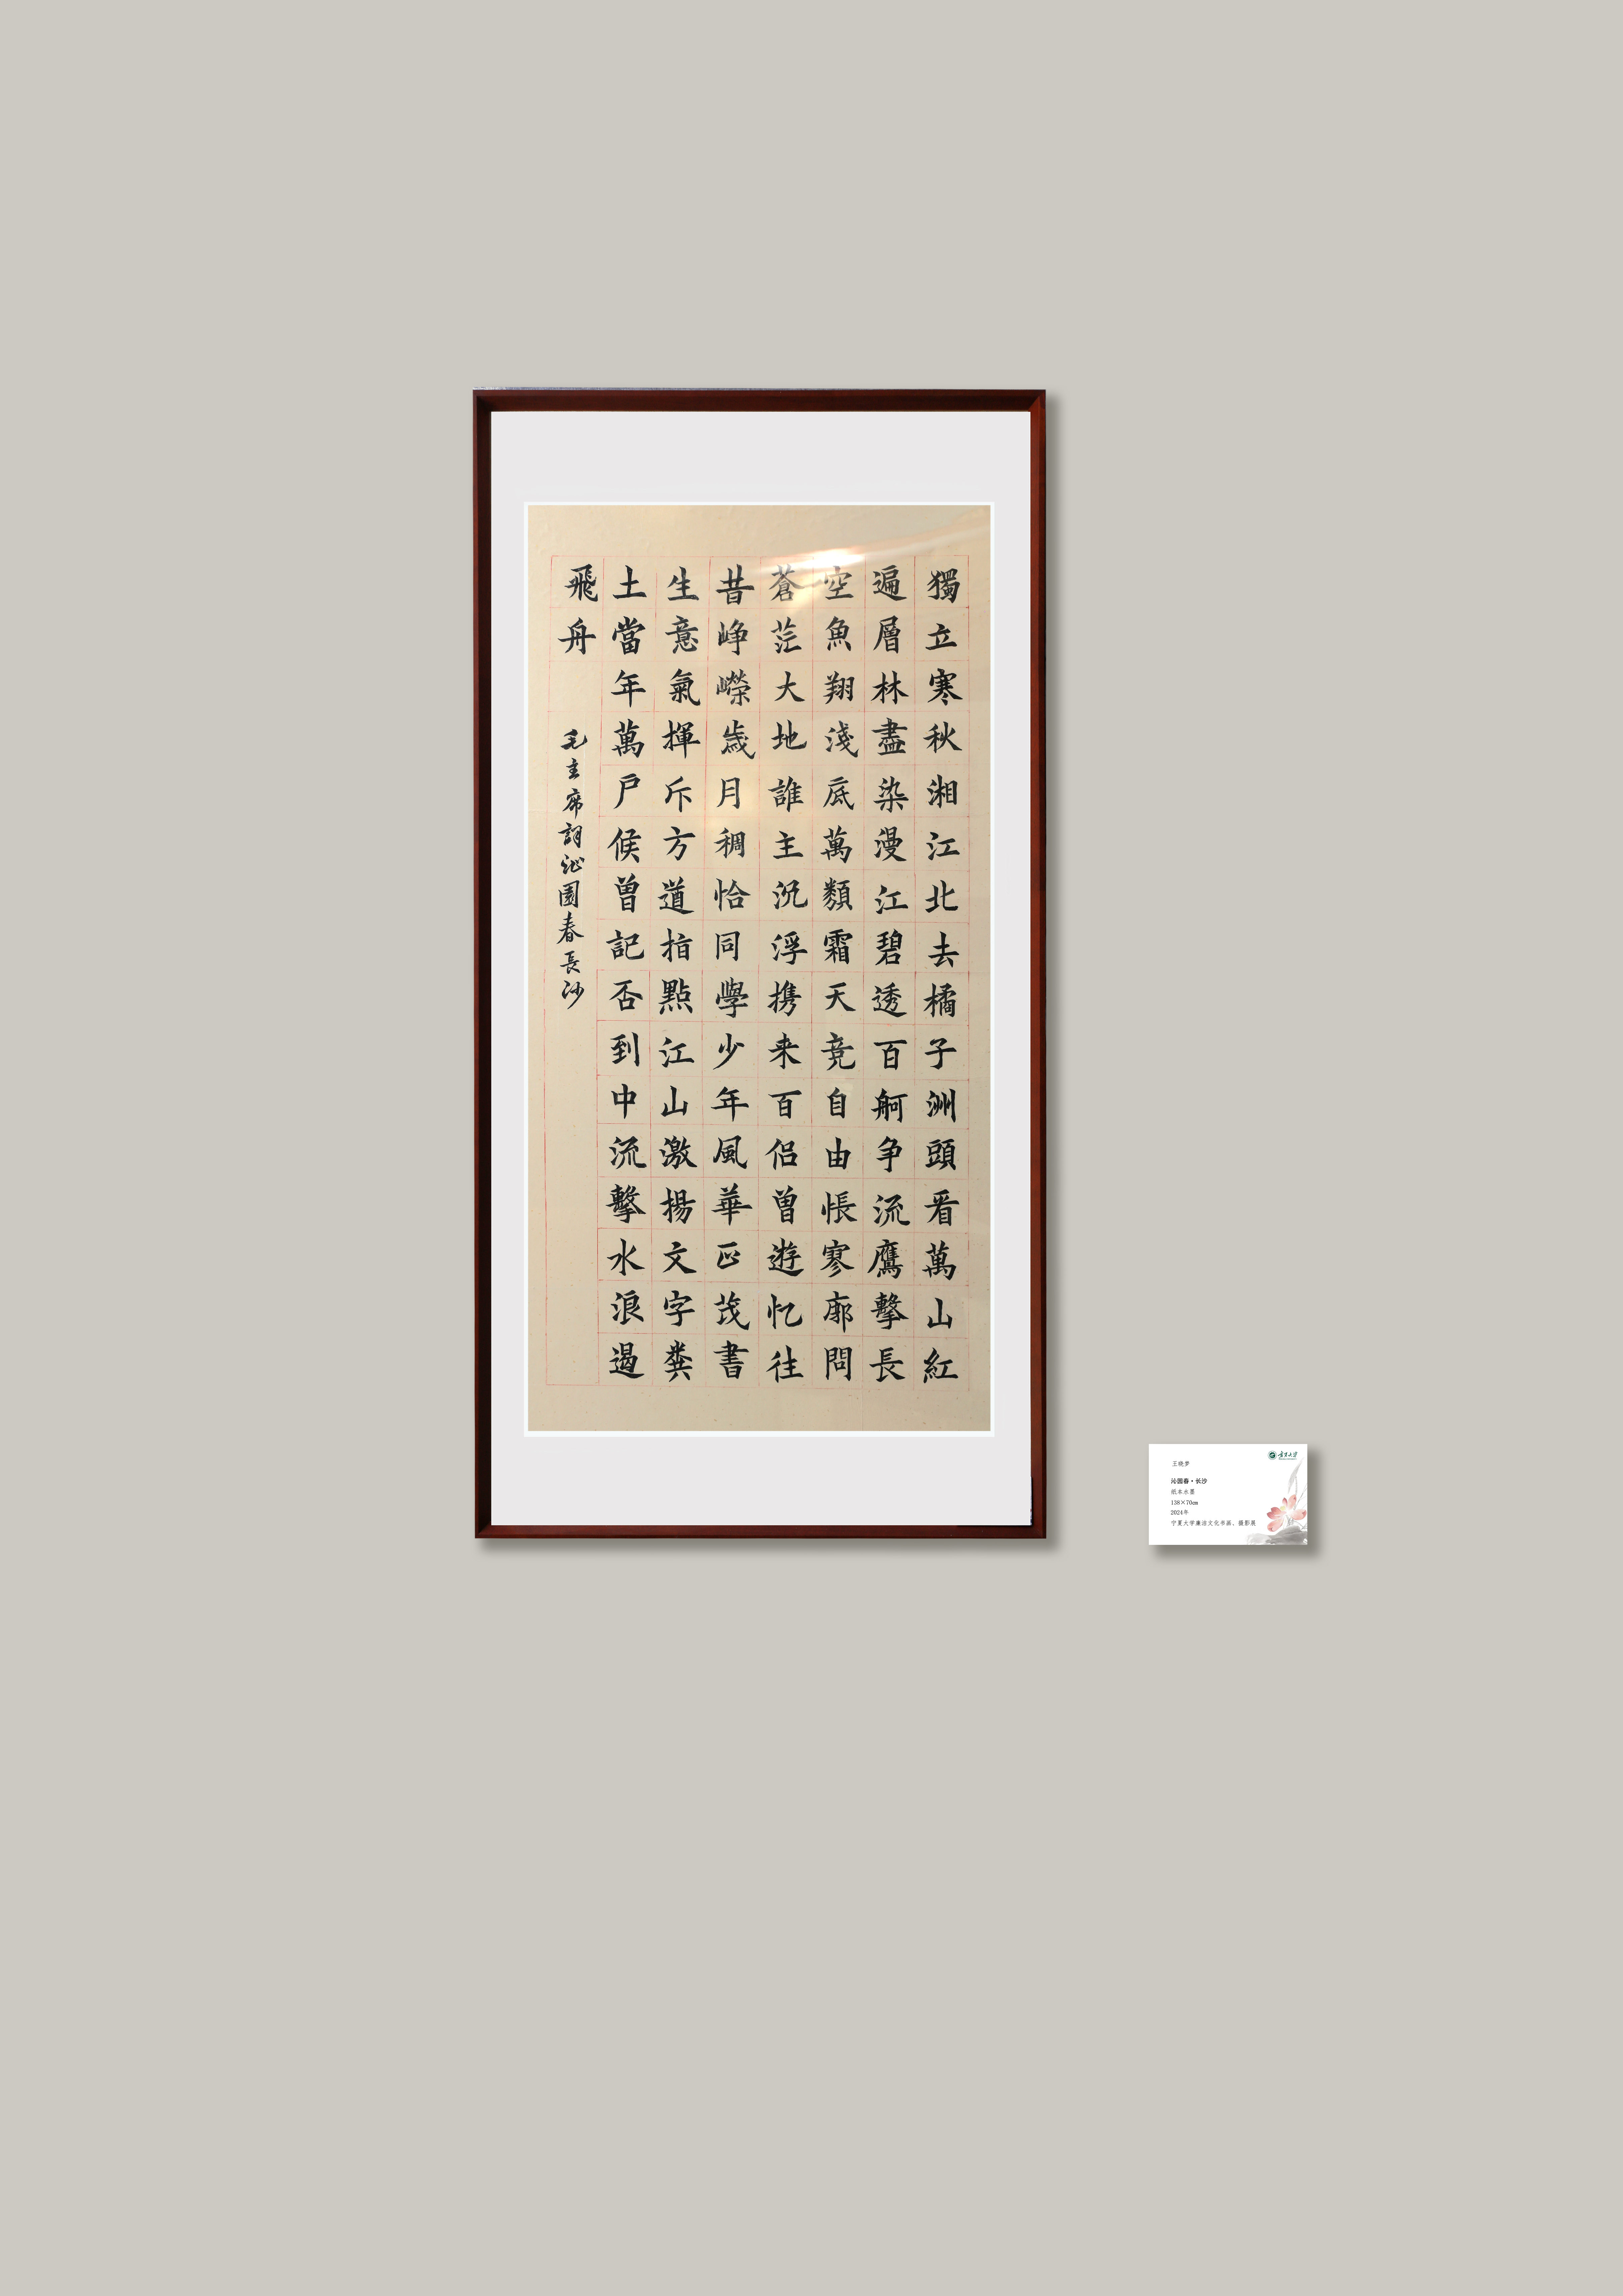 獨立寒秋湘江北去橘子洲頭看萬山紅
遍層林盡染漫江碧透百舸争流鷹擊長
空魚翔淺底萬類霜天竞自由悵寥廓問
蒼茫大地誰主沉浮携来百侣曾遊忆往
昔峥嶸歲月稠恰同學少年風華正茂書
生意氣揮斥方遒指點江山激揚文字糞
土當年萬户侯曾記否到中流擊水浪遏
飛舟
毛主席詞沁園春長沙
宁夏大学
王晓梦
沁园春·长沙
纸本水墨
138×70cm
2024年
宁夏大学廉洁文化书画、摄影展